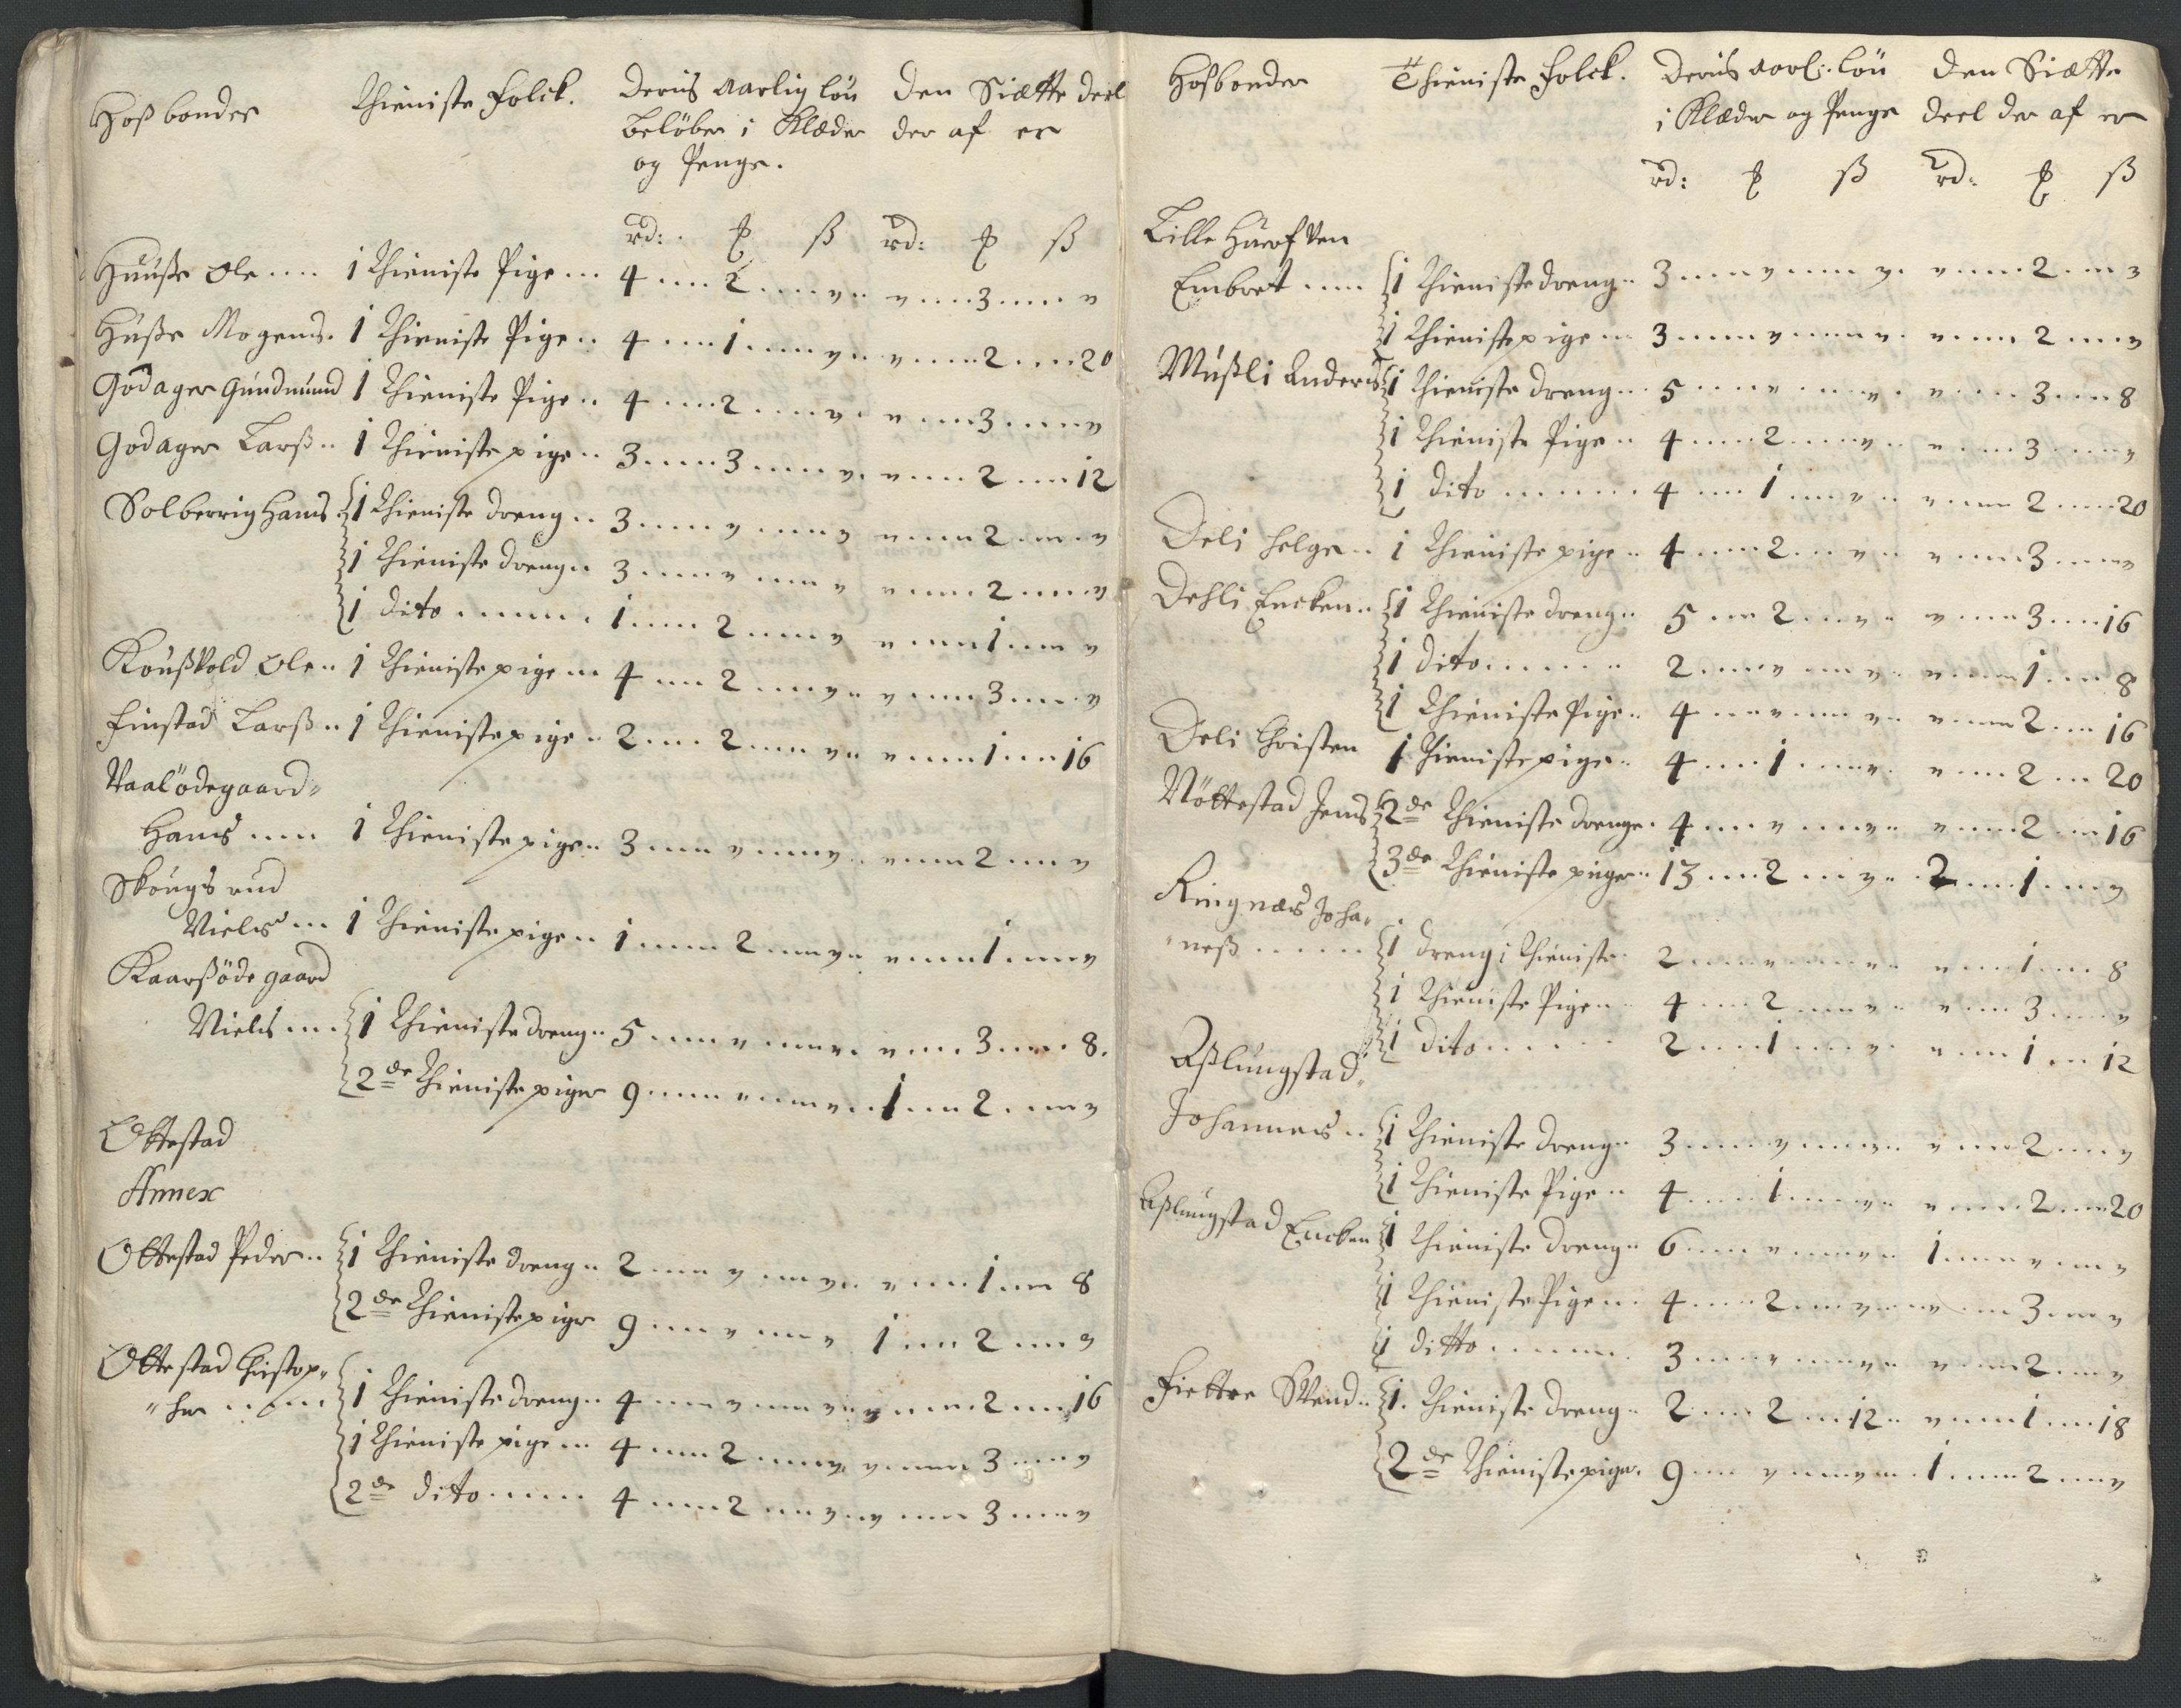 Hosbonder Thieniste folck. Deris Aarlig lön Den Siætte deel
belöber i Klæder der af er
og Penge.
rd: ℔ ß rd: ℔ ß
Huuße Ole .... 1 Thieniste Pige ... 4 .... 2 .... " .. " .... 3 .... "
Huße Mogens. 1 Thieniste Pige .. 4 .... 1 .... " .. " .... 2 .... 20
Godager Gundmund 1 Thieniste Pige .. 4 .... 2 .... " . " .... 3 .... "
Godager Larß .. 1 Thieniste pige .. 3 .... 3 .... " . " .... 2 .... 12
Solberrig Hans { 1 Thieniste dreng .. 3 .... " .... " " .... 2 .... "
1 Thieniste dreng .. 3 .... " .... " " .... 2 .... "
1 dito ...... 1 .... 2 .... " " .... 1 .... "
Koußvold Ole .. 1 Thieniste pige ... 4 .... 2 .... " .. " .... 3 .... "
Finstad Larß .. 1 Thieniste pige .. 2 .... 2 .... " .. " .... 1 .... 16
Vaalödegaard"
Hans .... 1 Thieniste pige .. 3 .... " .... " .. " .... 2 .... "
Skougs rud
Niels ... 1 Thieniste pige .. 1 .... 2 .... " .. " .... 1 .... "
Kaarßöde gaard
Niels ... { 1 Thieniste dreng .. 5 .... " .... " . " .... 3 .... 8.
2de Thieniste piger 9 .... " .... " .. 1 .... 2 .... "
Ottestad
Annex
Ottestad Peder .. { 1 Thieniste dreng .. 2 .... " .... " .. " .... 1 .... 8
2de Thieniste piger 9 .... " .... " 1 .... 2 .... "
Ottestad Christop"
"her ...... { 1 Thieniste dreng .. 4 .... " .... " .. " .... 2 .... 16
1 Thieniste pige ... 4 .... 2 .... " . " .... 3 .... "
2de dito ..... 4 .... 2 .... " .. " .... 3 .... "
Hosbonder Thieniste folck. Deris aarl: lön Den Siætte
i Klæder og Penge deel der af er
rd: ℔ ß rd: ℔ ß
Lille Huerfven
Embret .... { 1 Thieniste dreng .. 3 .... " .... " . " .... 2 .... "
1 Thieniste pige ... 3 .... " .... " . " .... 2 .... "
Mußli Anders { 1 Thieniste dreng ... 5 .... " .... " . " .... 3 .... 8
1 Thieniste Pige .. 4 .... 2 .... " .. " .... 3 .... "
1 dito ....... 4 .... 1 .... " .. " .... 2 .... 20
Deli Helge .. 1 Thieniste pige .. 4 .... 2 .... " .. " .... 3 .... "
Dehli Encken .. { 1 Thieniste dreng .. 5 .... 2 .... " .. " .... 3 .... 16
1 dito ....... 2 .... " .... " .. " .... 1 .... 8
1 Thieniste Pige .. 4 .... " .... " .. " .... 2 .... 16
Deli Christen 1 Thieniste pige .. 4 .... 1 .... " . " .... 2 .... 20
Nöttestad Jens { 2de Thieniste drenge . 4 .... " .... " .. " .... 2 .... 16
3de Thieniste piiger .. 13 .... 2 .... " .. 2 .... 1 .... "
Ringnæs Joha"
"neß ..... { 1 dreng i Thieniste . 2 .... " .... " .. " .... 1 .... 8
1 Thieniste Pige ... 4 .... 2 .... " .. " .... 3 .... "
1 dito ...... 2 .... 1 .... " . " .... 1 .... 12
Aßlungstad"
Johannes .. { 1 Thieniste dreng .. 3 .... " .... " .. " .... 2 .... "
1 Thieniste Pige .. 4 .... 1 .... " .. " .... 2 .... 20
Aßlungstad Encken { 1 Thieniste dreng .. 6 .... " .... " .. 1 .... " .... "
1 Thieniste Pige ... 4 .... 2 .... " .... " .... 3 .... "
1 ditto ...... 3 .... " .... " .. " .... 2 .... "
Fiettre Svend .. { 1. Thieniste dreng .. 2 .... 2 .... 12 .. " .... 1 .... 18
2de Thieniste piger . 9 .... " .... " .... 1 .... 2 .... "